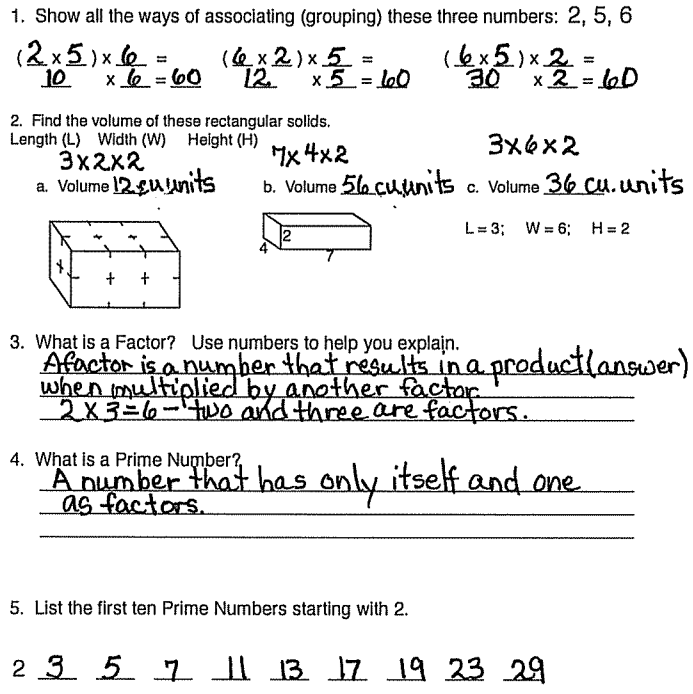 1. Show all the ways of associating (grouping) these three numbers: 2, 5, 6
(2 x 5) x 6 = (6 x 2) x 5 = (6 x 5) x 2 =
10 x 6 = 60 12 x 5 = 60 30 x 2 = 60
2. Find the volume of these rectangular solids.
Length (L) Width (W) Height (H)
3x2x2 7x4x2 3x6x2
a. Volume 12 cu. units b. Volume 56 cu. units c. Volume 36 cu. units
L = 3; W = 6; H = 2
2
4
7
3. What is a Factor? Use numbers to help you explain.
A factor is a number that results in a product (answer)
when multiplied by another factor.
2 x 3 = 6 - two and three are factors.
4. What is a Prime Number?
A number that has only itself and one
as factors.
5. List the first ten Prime Numbers starting with 2.
2 3 5 7 11 13 17 19 23 29